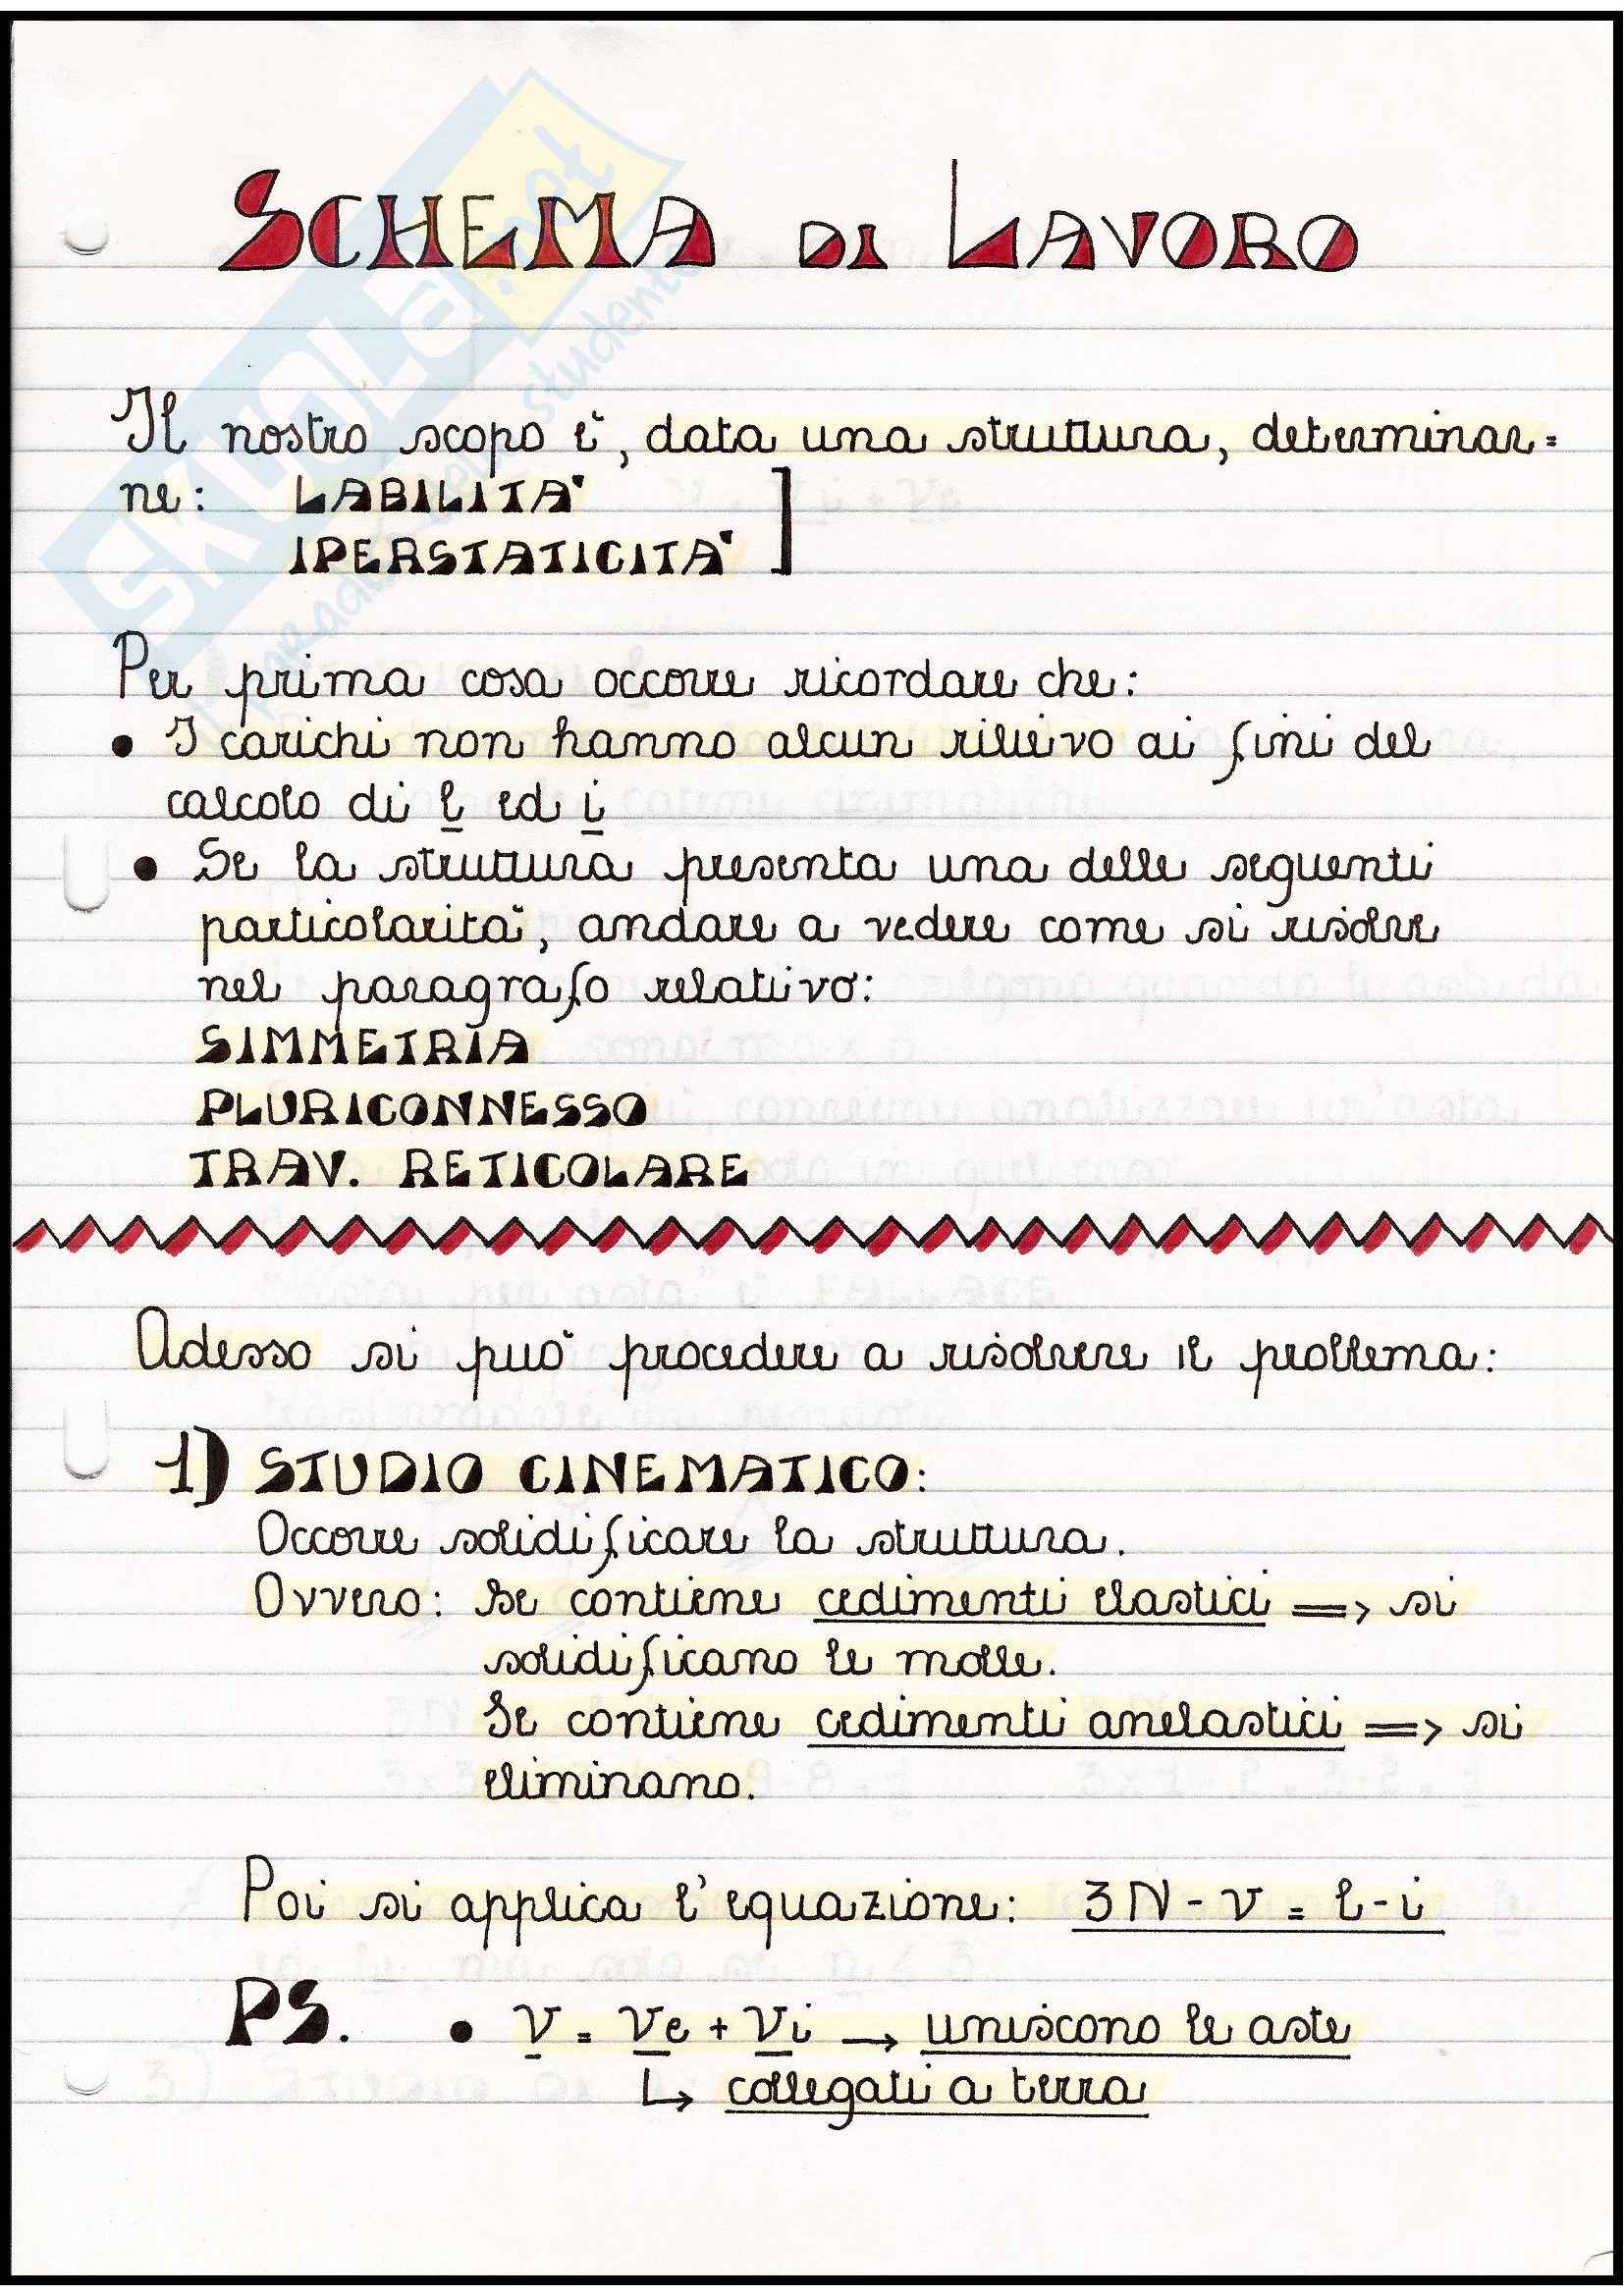 SCHEMA DI LAVORO
Il nostro scopo è, data una struttura, determinar=
ne: LABILITA' ]
IPERSTATICITA'
Per prima cosa occorre ricordare che:
• I carichi non hanno alcun rilievo ai fini del
calcolo di l ed i
• Se la struttura presenta una delle seguenti
particolarità, andare a vedere come si risolve
nel paragrafo relativo:
SIMMETRIA
PLURICONNESSO
TRAV. RETICOLARE
Adesso si può procedere a risolvere il problema:
1) STUDIO CINEMATICO:
Occorre solidificare la struttura.
Ovvero: Se contiene cedimenti elastici => si
solidificano le molle.
Se contiene cedimenti anelastici => si
eliminano.
Poi si applica l'equazione: 3N - v = l - i
PS. • v = ve + vi → uniscono le aste
↳ collegati a terra
SKUOLA.net